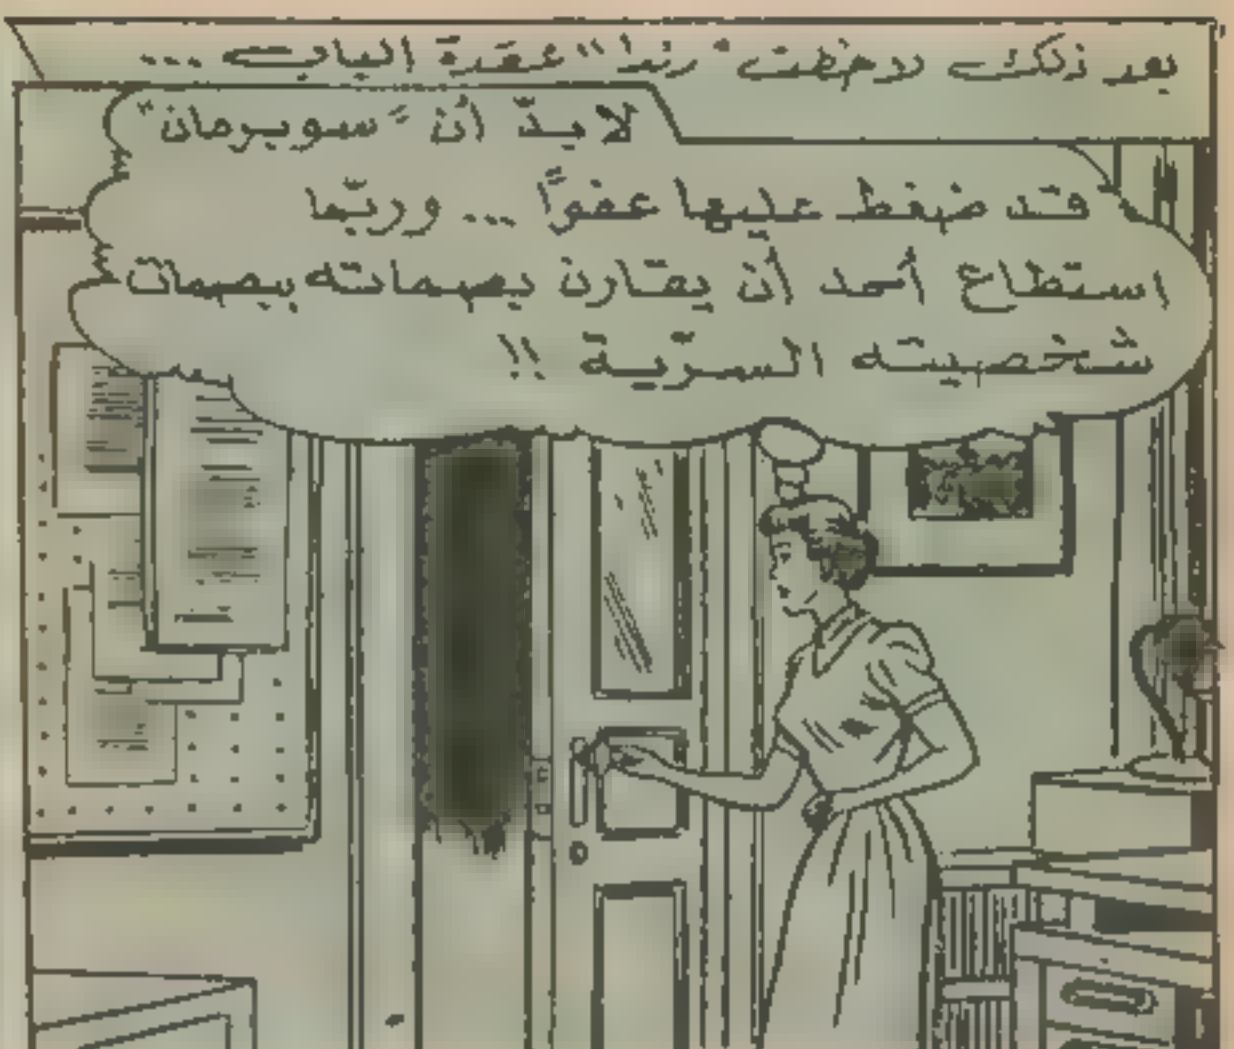 بعد ذلك لاحظت "رندا" عقدة الباب ...
لا بدّ أن "سوبرمان"
قد ضغط عليها عفوًا ... وربّما
استطاع أحد أن يقارن بصماته ببصمات
شخصيته السرّية !!